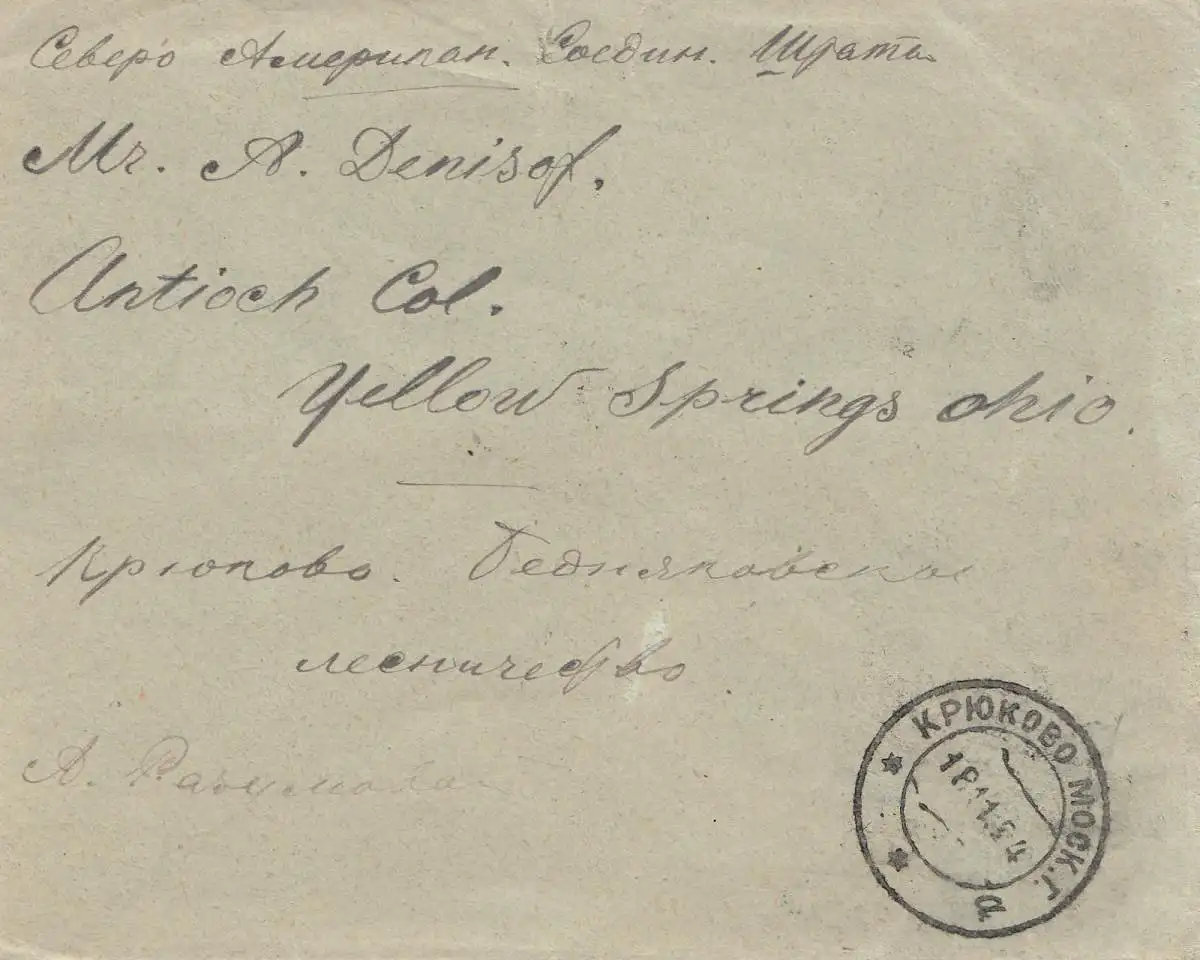 Северо Американ. Соедин. Штаты
Mr. A. Denisof.
Antioch Col.
Yellow Springs Ohio.
Крюково. Бедняковское
лесничество
А.
КРЮКОВО МОСК.Г.
а